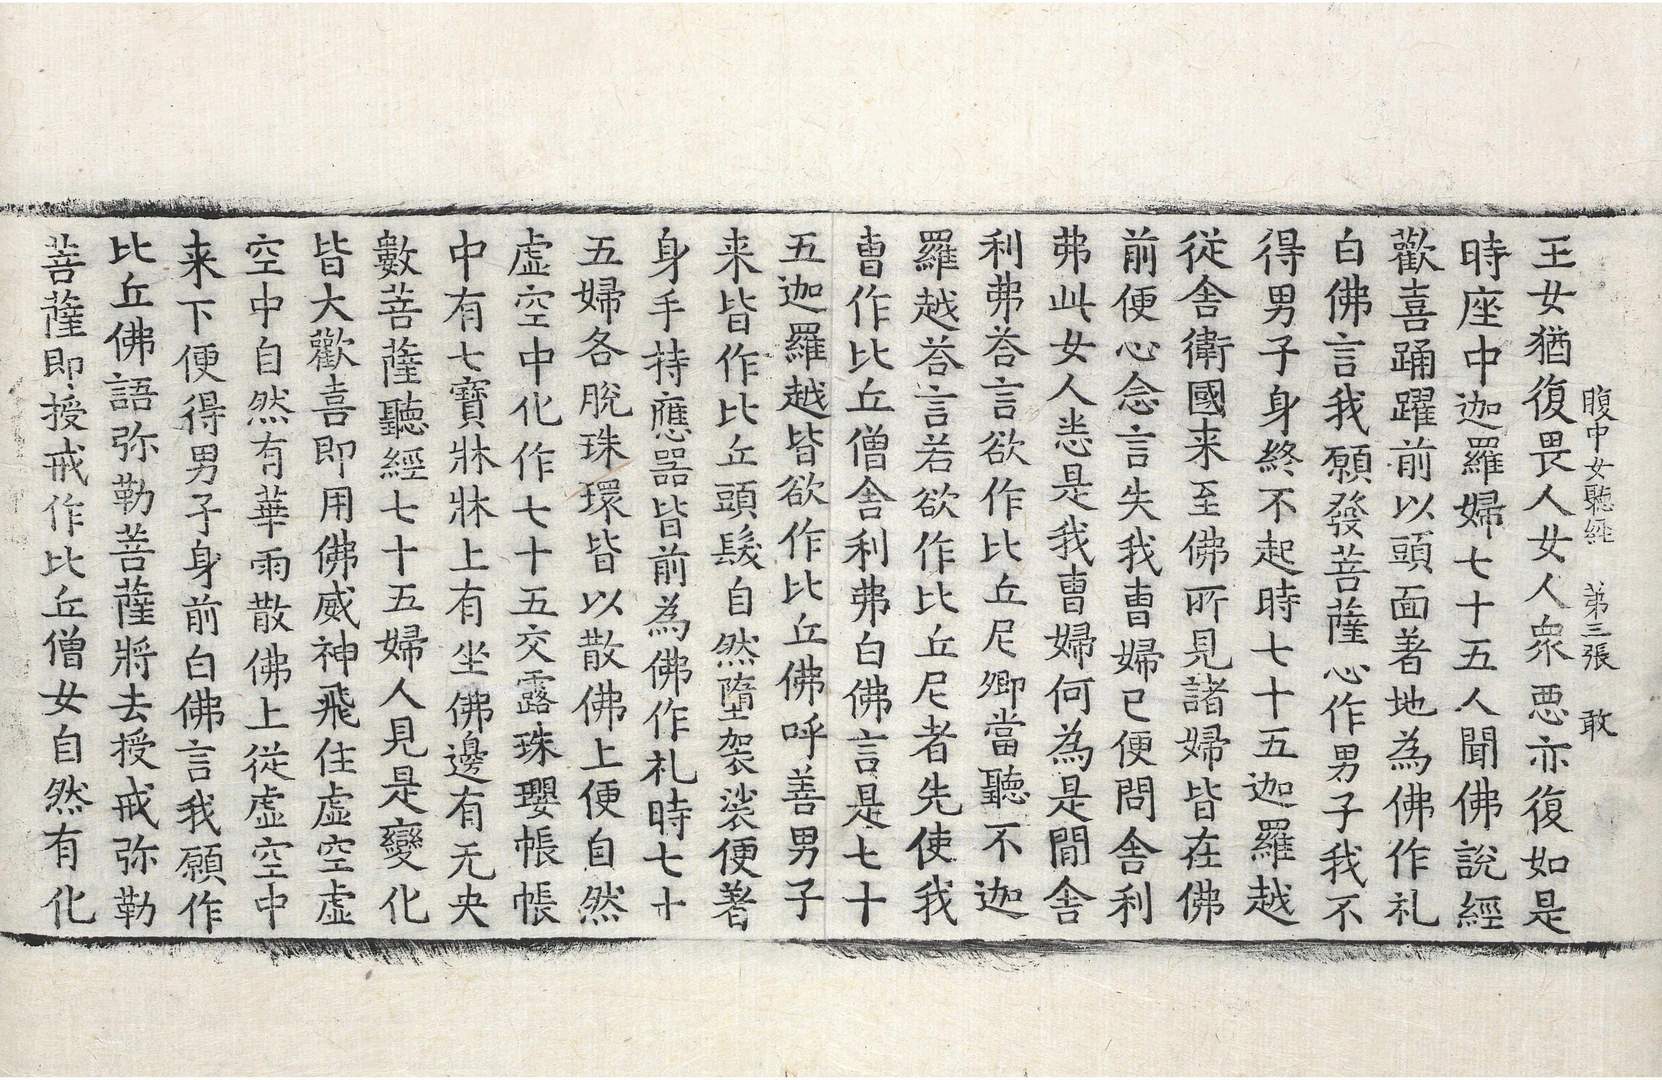 腹中女聽經　第三張　敢
王女猶復畏人女人衆惡亦復如是
時座中迦羅婦七十五人聞佛說經
歡喜踊躍前以頭面著地為佛作礼
白佛言我願發菩薩心作男子我不
得男子身終不起時七十五迦羅越
從舍衛國来至佛所見諸婦皆在佛
前便心念言失我曺婦已便問舍利
弗此女人悉是我曺婦何為是間舍
利弗荅言欲作比丘尼卿當聽不迦
羅越荅言若欲作比丘尼者先使我
曺作比丘僧舍利弗白佛言是七十
五迦羅越皆欲作比丘佛呼善男子
来皆作比丘頭髮自然墮袈裟便著
身手持應器皆前為佛作礼時七十
五婦各脫珠環皆以散佛上便自然
虛空中化作七十五交露珠瓔帳帳
中有七寶牀牀上有坐佛邊有无央
數菩薩聽經七十五婦人見是變化
皆大歡喜即用佛威神飛住虛空虛
空中自然有華雨散佛上從虛空中
来下便得男子身前白佛言我願作
比丘佛語弥勒菩薩將去授戒弥勒
菩薩即授戒作比丘僧女自然有化